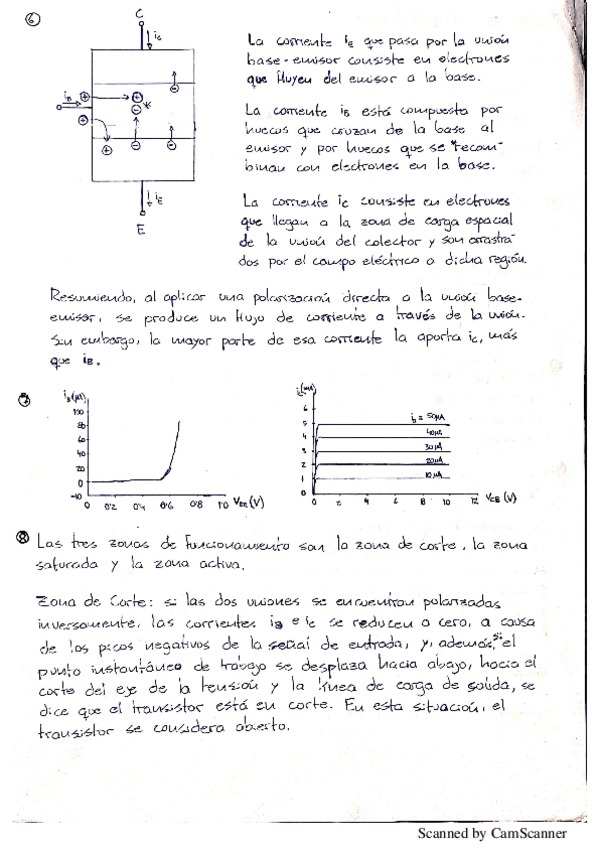 6
C
ic
La corriente iE que pasa por la unión
base-emisor consiste en electrones
que fluyen del emisor a la base.
iB
La corriente iB está compuesta por
huecos que cruzan de la base al
emisor y por huecos que se recom-
binan con electrones en la base.
iE
E
La corriente ic consiste en electrones
que llegan a la zona de carga espacial
de la unión del colector y son arrastra-
dos por el campo eléctrico a dicha región.
Resumiendo, al aplicar una polarización directa a la unión base-
emisor, se produce un flujo de corriente a través de la unión.
Sin embargo, la mayor parte de esa corriente la aporta ic, más
que iB.
7
iB(μA)
100
80
60
40
20
0
-10
0 0'2 0'4 0'6 0'8 1'0 VBE (V)
ic(mA)
6
5
4
3
2
1
0
ib = 50μA
40μA
30μA
20μA
10μA
0 2 4 6 8 10 12 VCB (V)
8 Las tres zonas de funcionamiento son la zona de corte, la zona
saturada y la zona activa.
Zona de Corte: si las dos uniones se encuentran polarizadas
inversamente, las corrientes iB e ic se reducen a cero, a causa
de los picos negativos de la señal de entrada, y, además, si el
punto instantáneo de trabajo se desplaza hacia abajo, hacia el
corte del eje de la tensión y la línea de carga de salida, se
dice que el transistor está en corte. En esta situación, el
transistor se considera abierto.
Scanned by CamScanner